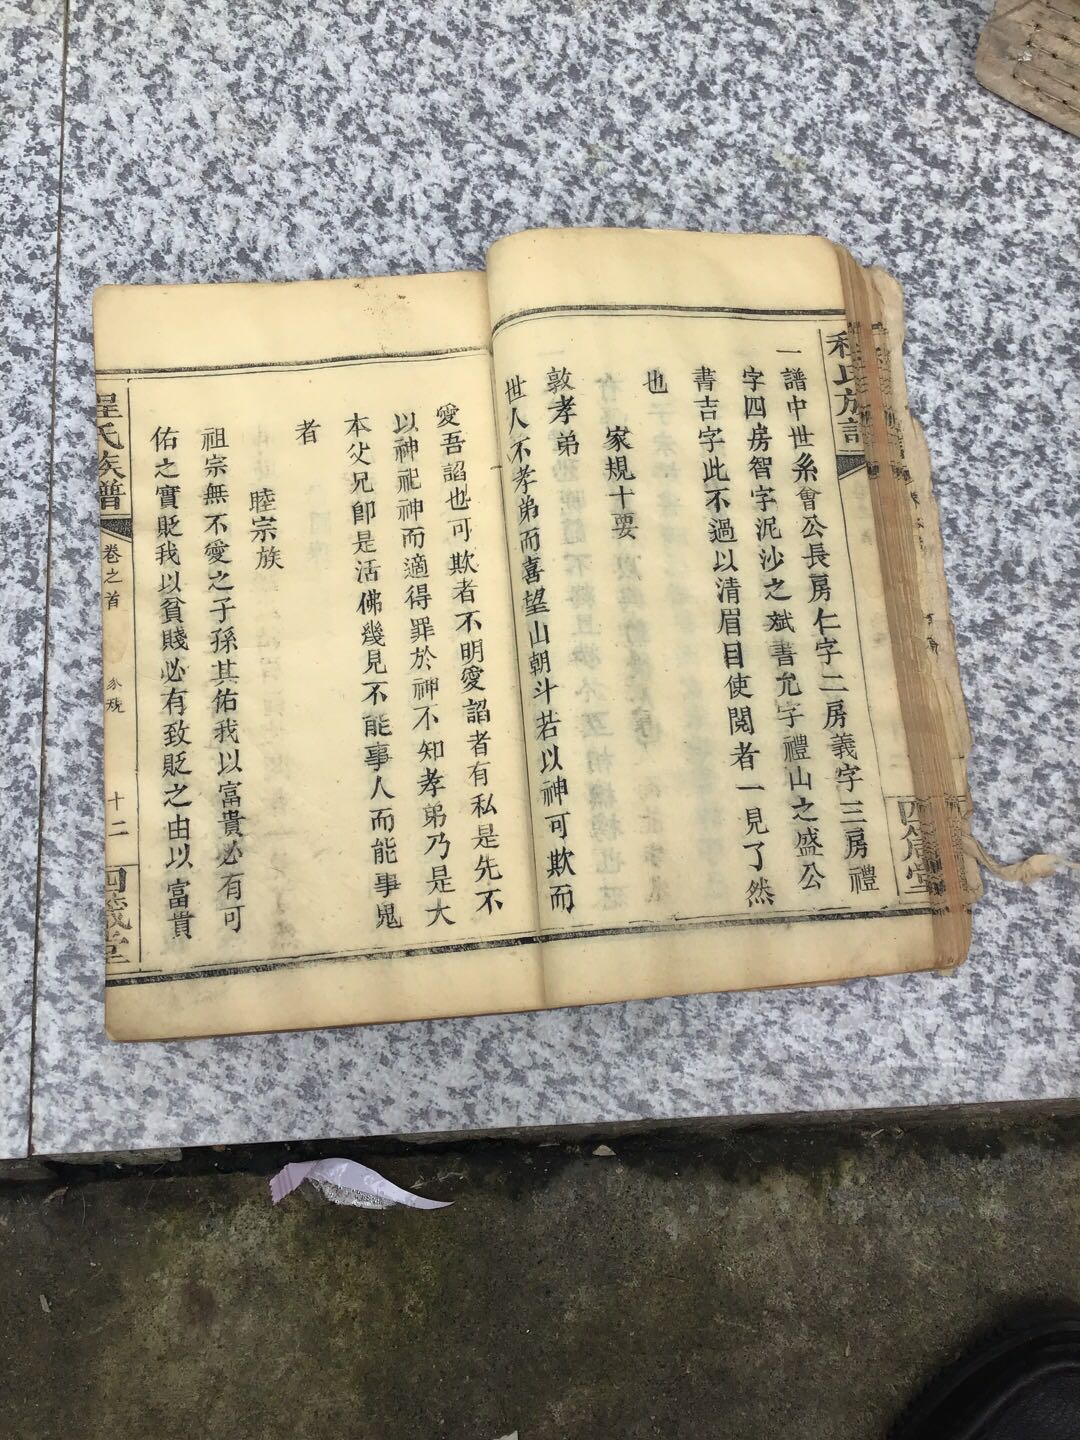 程氏族譜
四箴堂
一譜中世系會公長房仁字二房義字三房禮
字四房智字泥沙之斌書允字禮山之盛公
書吉字此不過以清眉目使閱者一見了然
也
家規十要
敦孝弟
世人不孝弟而喜望山朝斗若以神可欺而
愛吾諂也可欺者不明愛諂者有私是先不
以神祀神而適得罪於神不知孝弟乃是大
本父兄即是活佛幾見不能事人而能事鬼
者
睦宗族
祖宗無不愛之子孫其佑我以富貴必有可
佑之實貶我以貧賤必有致貶之由以富貴
程氏族譜
卷之首
家規
十二
四箴堂